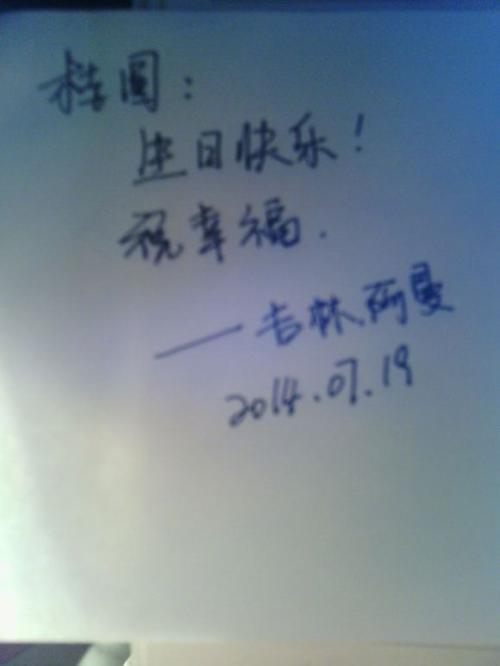 桂圆：
生日快乐！
祝幸福.
——吉林.阿曼
2014.07.19